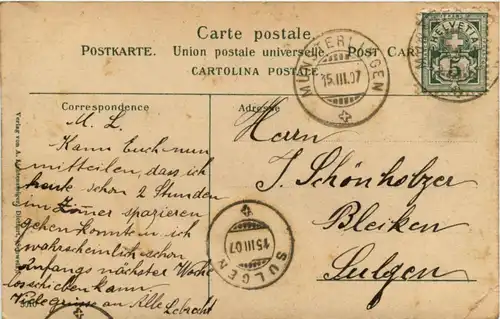 Carte postale.
POSTKARTE. Union postale universelle. POST CARD
CARTOLINA POSTALE.
HELVETIA
5
MÜNSTERLINGEN
15.III.07
Correspondence
Adresse
M. L.
Kann Euch nun
mitteilen, dass ich
heute schon 2 Stunden
im Zimmer spazieren
gehen konnte u. ich
wahrscheinlich schon
Anfangs nächster Woche
losschieben kann.
Viele Grüsse an Alle Lebrecht
Herrn
J. Schönholzer
Bleiken
Sulgen
SULGEN
15.III.07
Verlag von